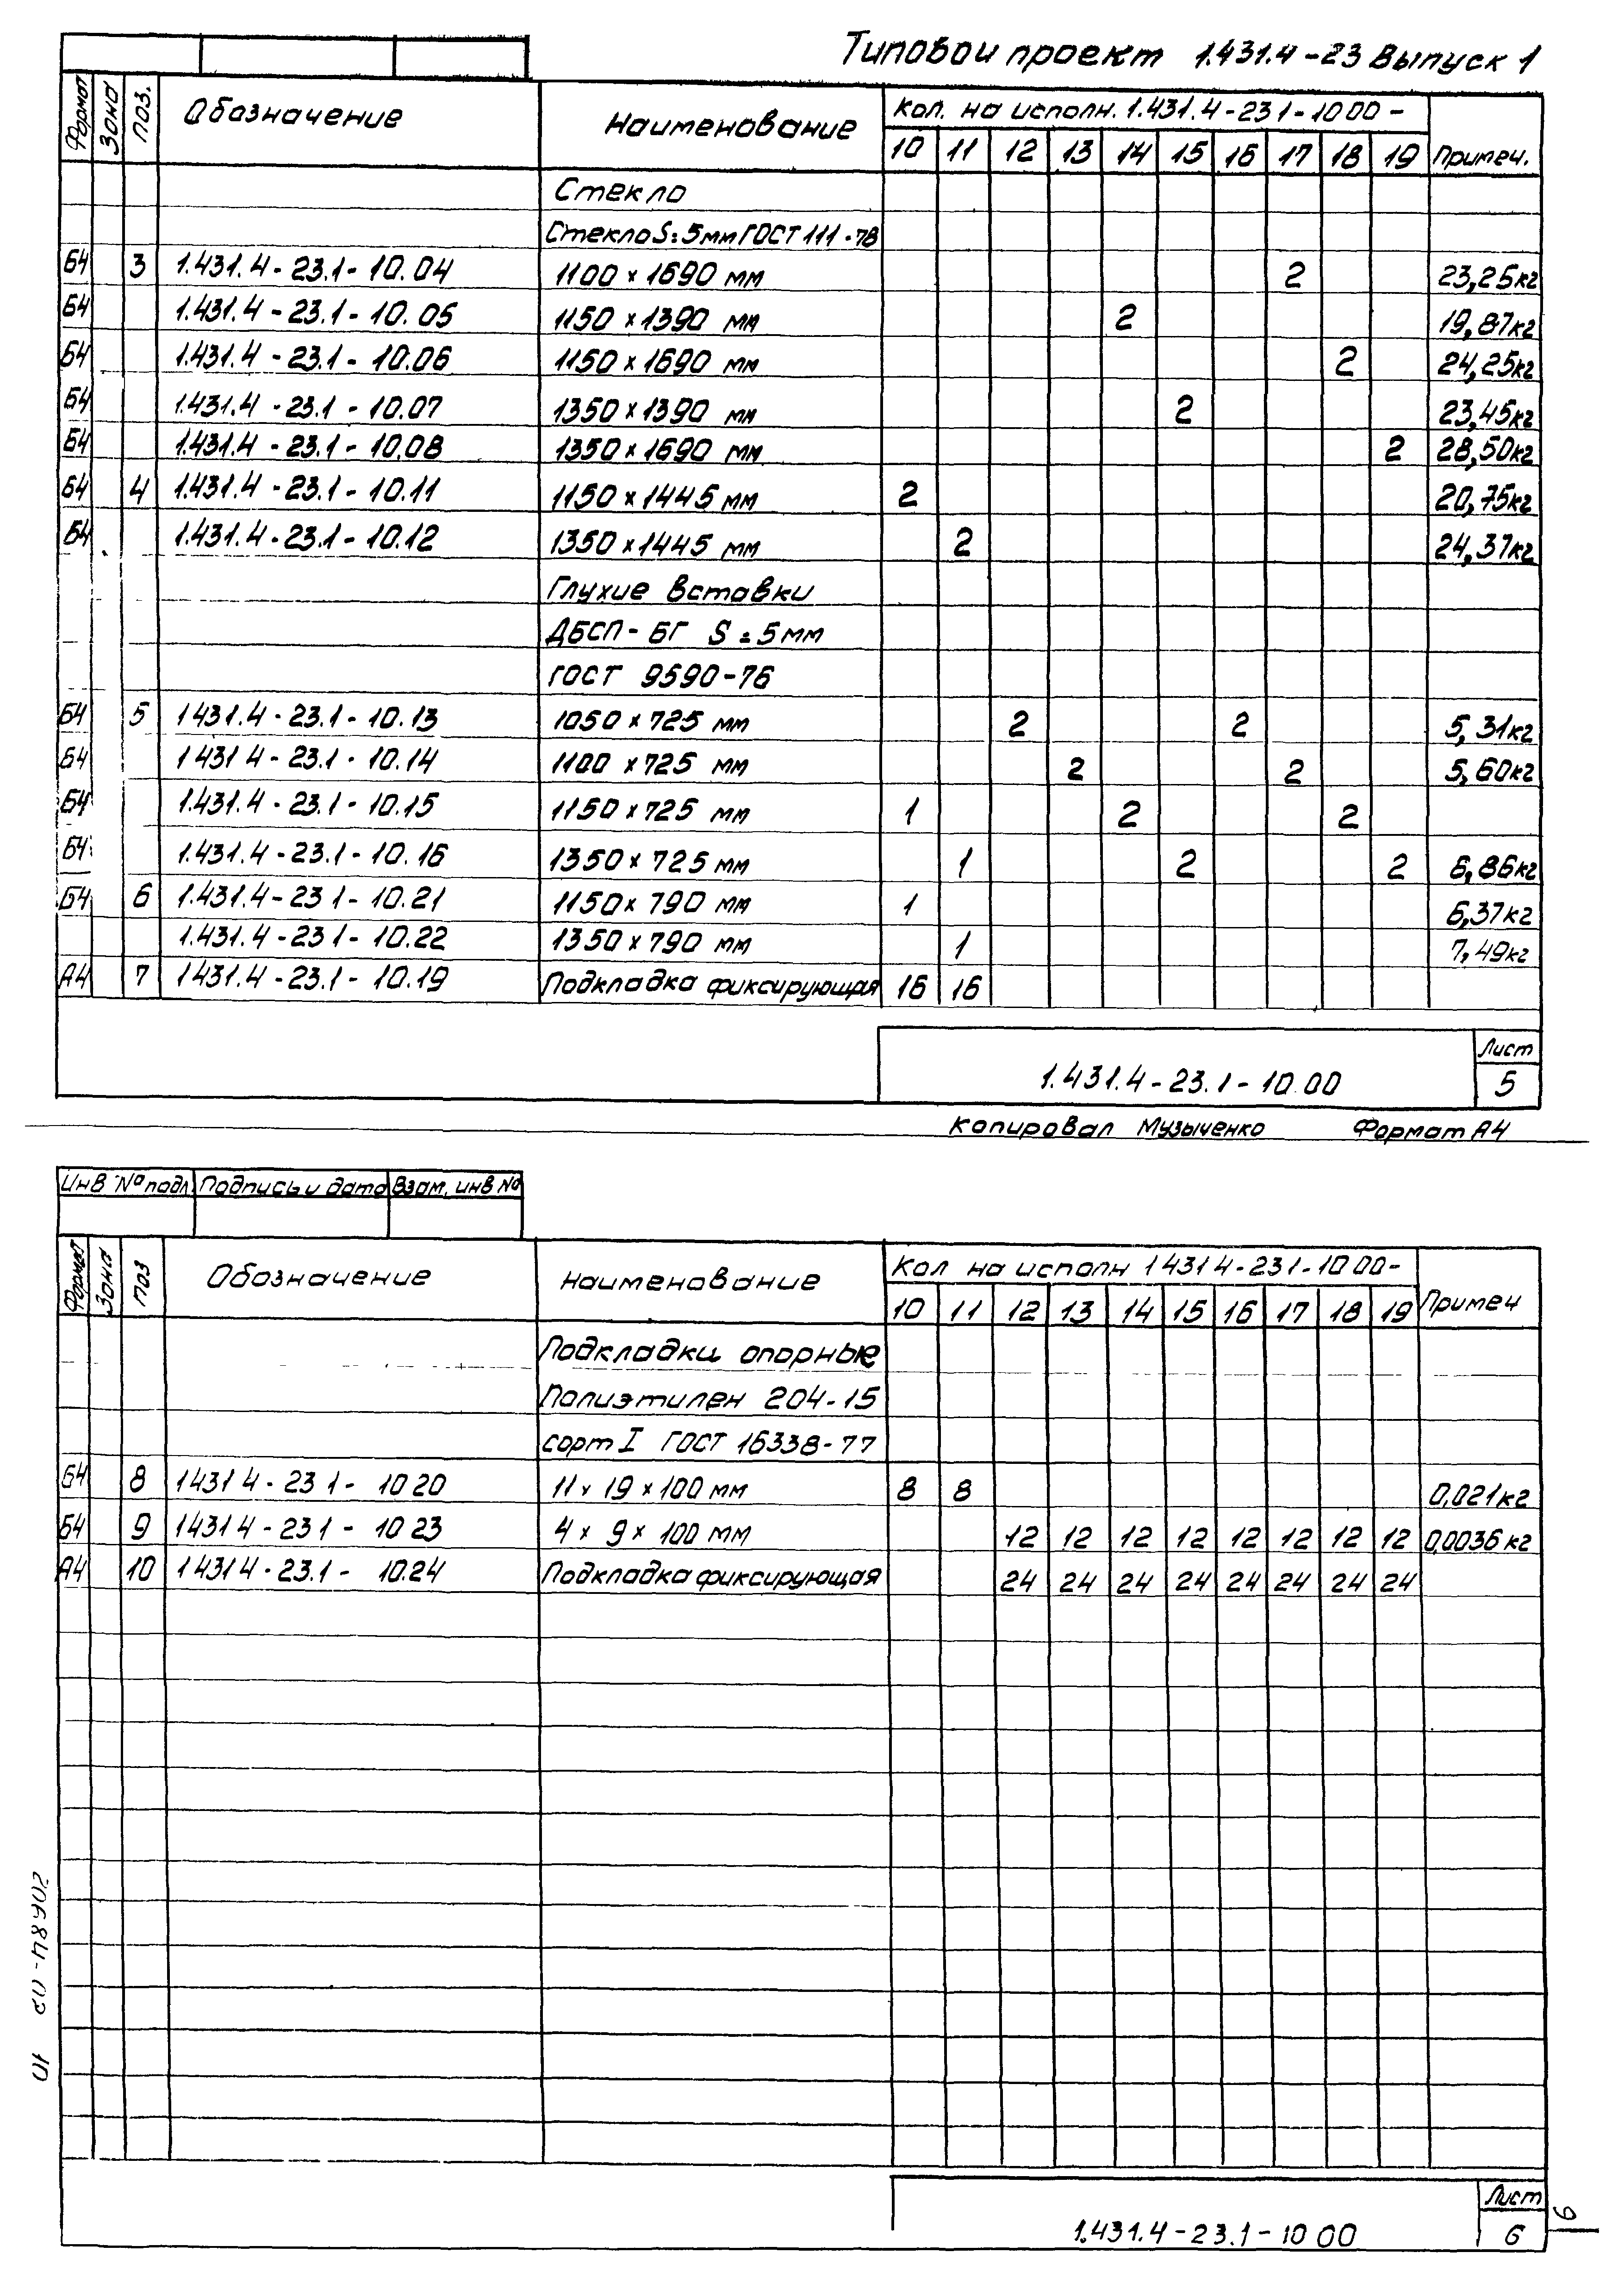 Типовой проект 1.431.4-23 Выпуск 1
Формат Зона Поз. Обозначение Наименование Кол. на исполн. 1.431.4-23 1-10 00 - Примеч.
10 11 12 13 14 15 16 17 18 19
Стекло
Стекло S=5мм ГОСТ 111-78
Б4 3 1.431.4-23.1-10.04 1100×1690 мм 2 23,25кг
Б4 1.431.4-23.1-10.05 1150×1390 мм 2 19,87кг
Б4 1.431.4-23.1-10.06 1150×1690 мм 2 24,25кг
Б4 1.431.4-23.1-10.07 1350×1390 мм 2 23,45кг
Б4 1.431.4-23.1-10.08 1350×1690 мм 2 28,50кг
Б4 4 1.431.4-23.1-10.11 1150×1445 мм 2 20,75кг
Б4 1.431.4-23.1-10.12 1350×1445 мм 2 24,37кг
Глухие вставки
ДБСП-БГ S=5мм
ГОСТ 9590-76
Б4 5 1 431.4-23.1-10.13 1050×725 мм 2 2 5,31кг
Б4 1 431 4-23.1-10.14 1100×725 мм 2 2 5,60кг
Б4 1.431.4-23.1-10.15 1150×725 мм 1 2 2
Б4 1.431.4-23.1-10.16 1350×725 мм 1 2 2 6,86кг
Б4 6 1.431.4-23 1-10.21 1150×790 мм 1 6,37кг
1.431.4-23 1-10.22 1350×790 мм 1 7,49кг
А4 7 1 431.4-23.1-10.19 Подкладка фиксирующая 16 16
1.431.4-23.1-10.00
Лист
5
Копировал Музыченко Формат А4
Инв № подл. Подпись и дата Взам. инв №
Формат Зона Поз Обозначение Наименование Кол на исполн 1 431 4-23 1-10 00- Примеч
10 11 12 13 14 15 16 17 18 19
Подкладки опорные
Полиэтилен 204-15
сорт I ГОСТ 16338-77
Б4 8 1 431 4-23 1- 10 20 11×19×100 мм 8 8 0,021кг
Б4 9 1 431 4-23 1- 10 23 4×9×100 мм 12 12 12 12 12 12 12 12 0,0036 кг
А4 10 1 431 4-23.1- 10.24 Подкладка фиксирующая 24 24 24 24 24 24 24 24
20684-02 10
1.431.4-23.1-10 00
Лист
6
9